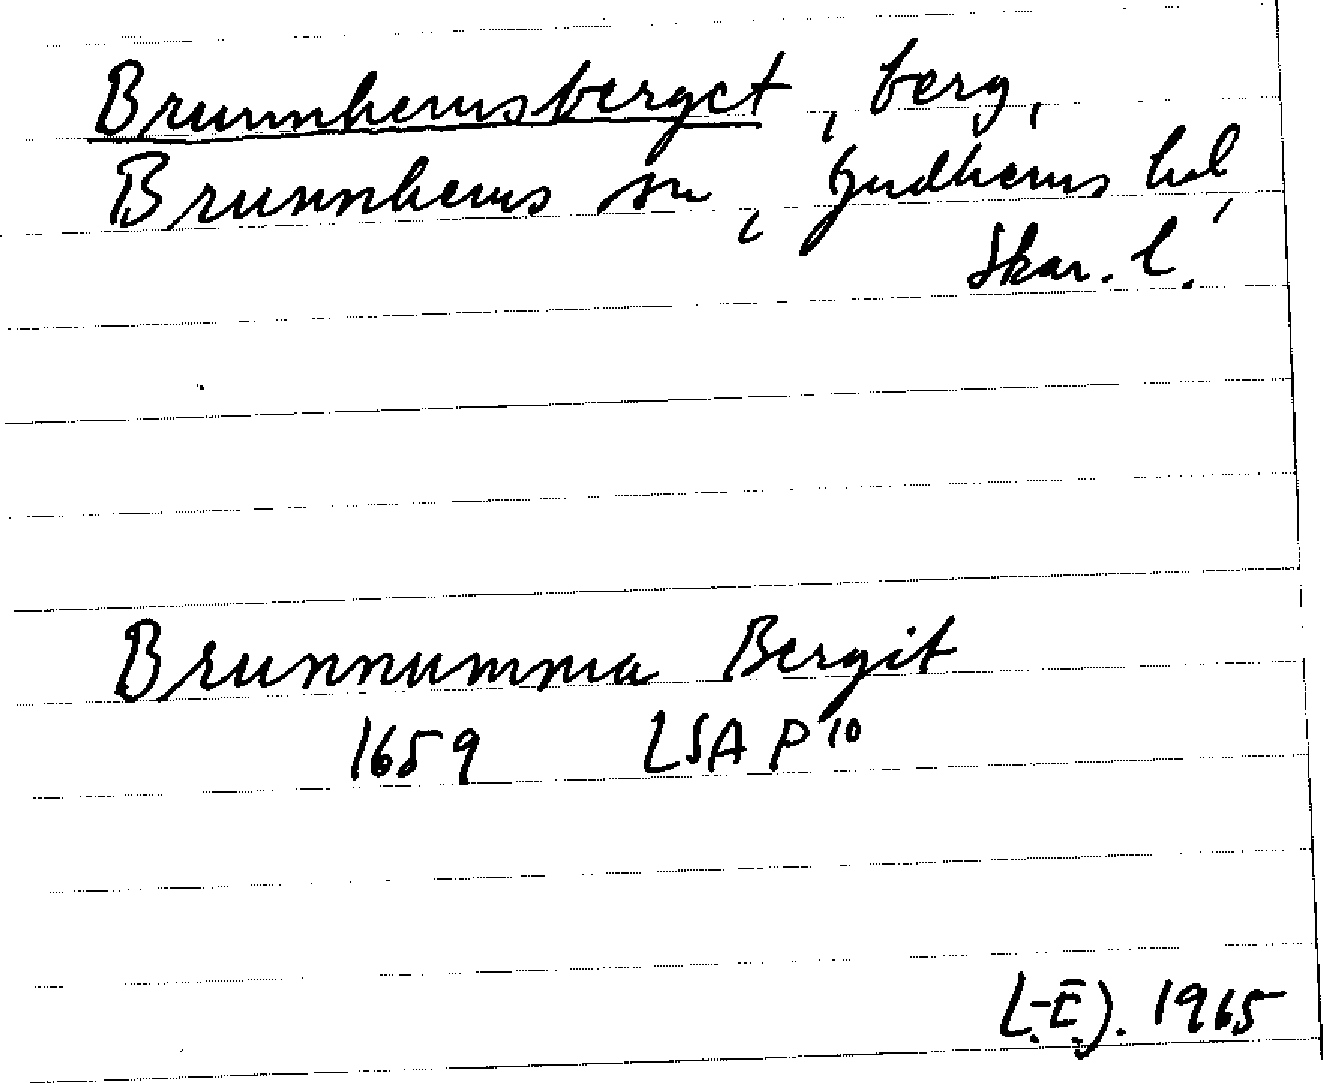 Brunnhemsberget, berg,
Brunnhems sn, Gudhems hd,
Skar. l.
Brunnumma Bergit
1659 LSA P 10
L.-E. J. 1965